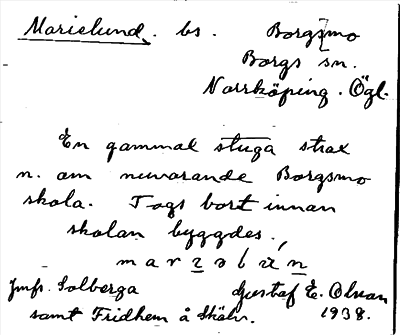 Marielund. bs. Borgsmo
Borgs sn.
Norrköping. Ögl.
En gammal stuga strax
n. om nuvarande Borgsmo
skola. Togs bort innan
skolan byggdes.
Jmfr. Solberga
samt Fridhem å Skälv.
Gustaf E. Olsson
1938.